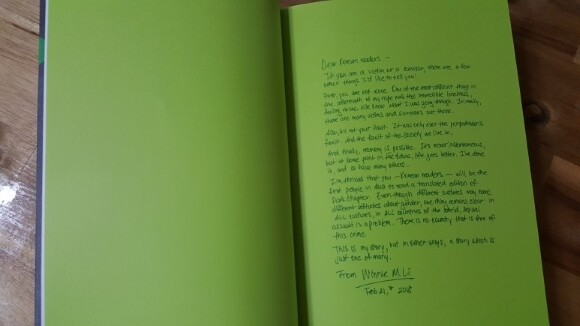 Dear Korean readers —
If you are a victim or a survivor, there are a
few things I'd like to tell you:
First, you are not alone. One of the most difficult things in
the aftermath of my rape was the incredible loneliness,
feeling no one else knew what I was going through. In reality,
there are many victims and survivors out there.
Also, it's not your fault. It was only ever the perpetrator's
fault. And the fault of the society we live in.
And finally, recovery is possible. It's never instantaneous,
but at some point in the future, life gets better. I've done
it, and so have many others.
I'm thrilled that you — Korean readers — will be the
first people in Asia to read a translated edition of
Dark Chapter. Even though different cultures may have
different attitudes about gender, one thing remains clear: in
ALL cultures, in ALL countries of the world, sexual
assault is a problem. There is no country that is free of
this crime.
This is my story, but in other ways, a story which is
just one of many.
From Winnie M Li
Feb 21, 2018